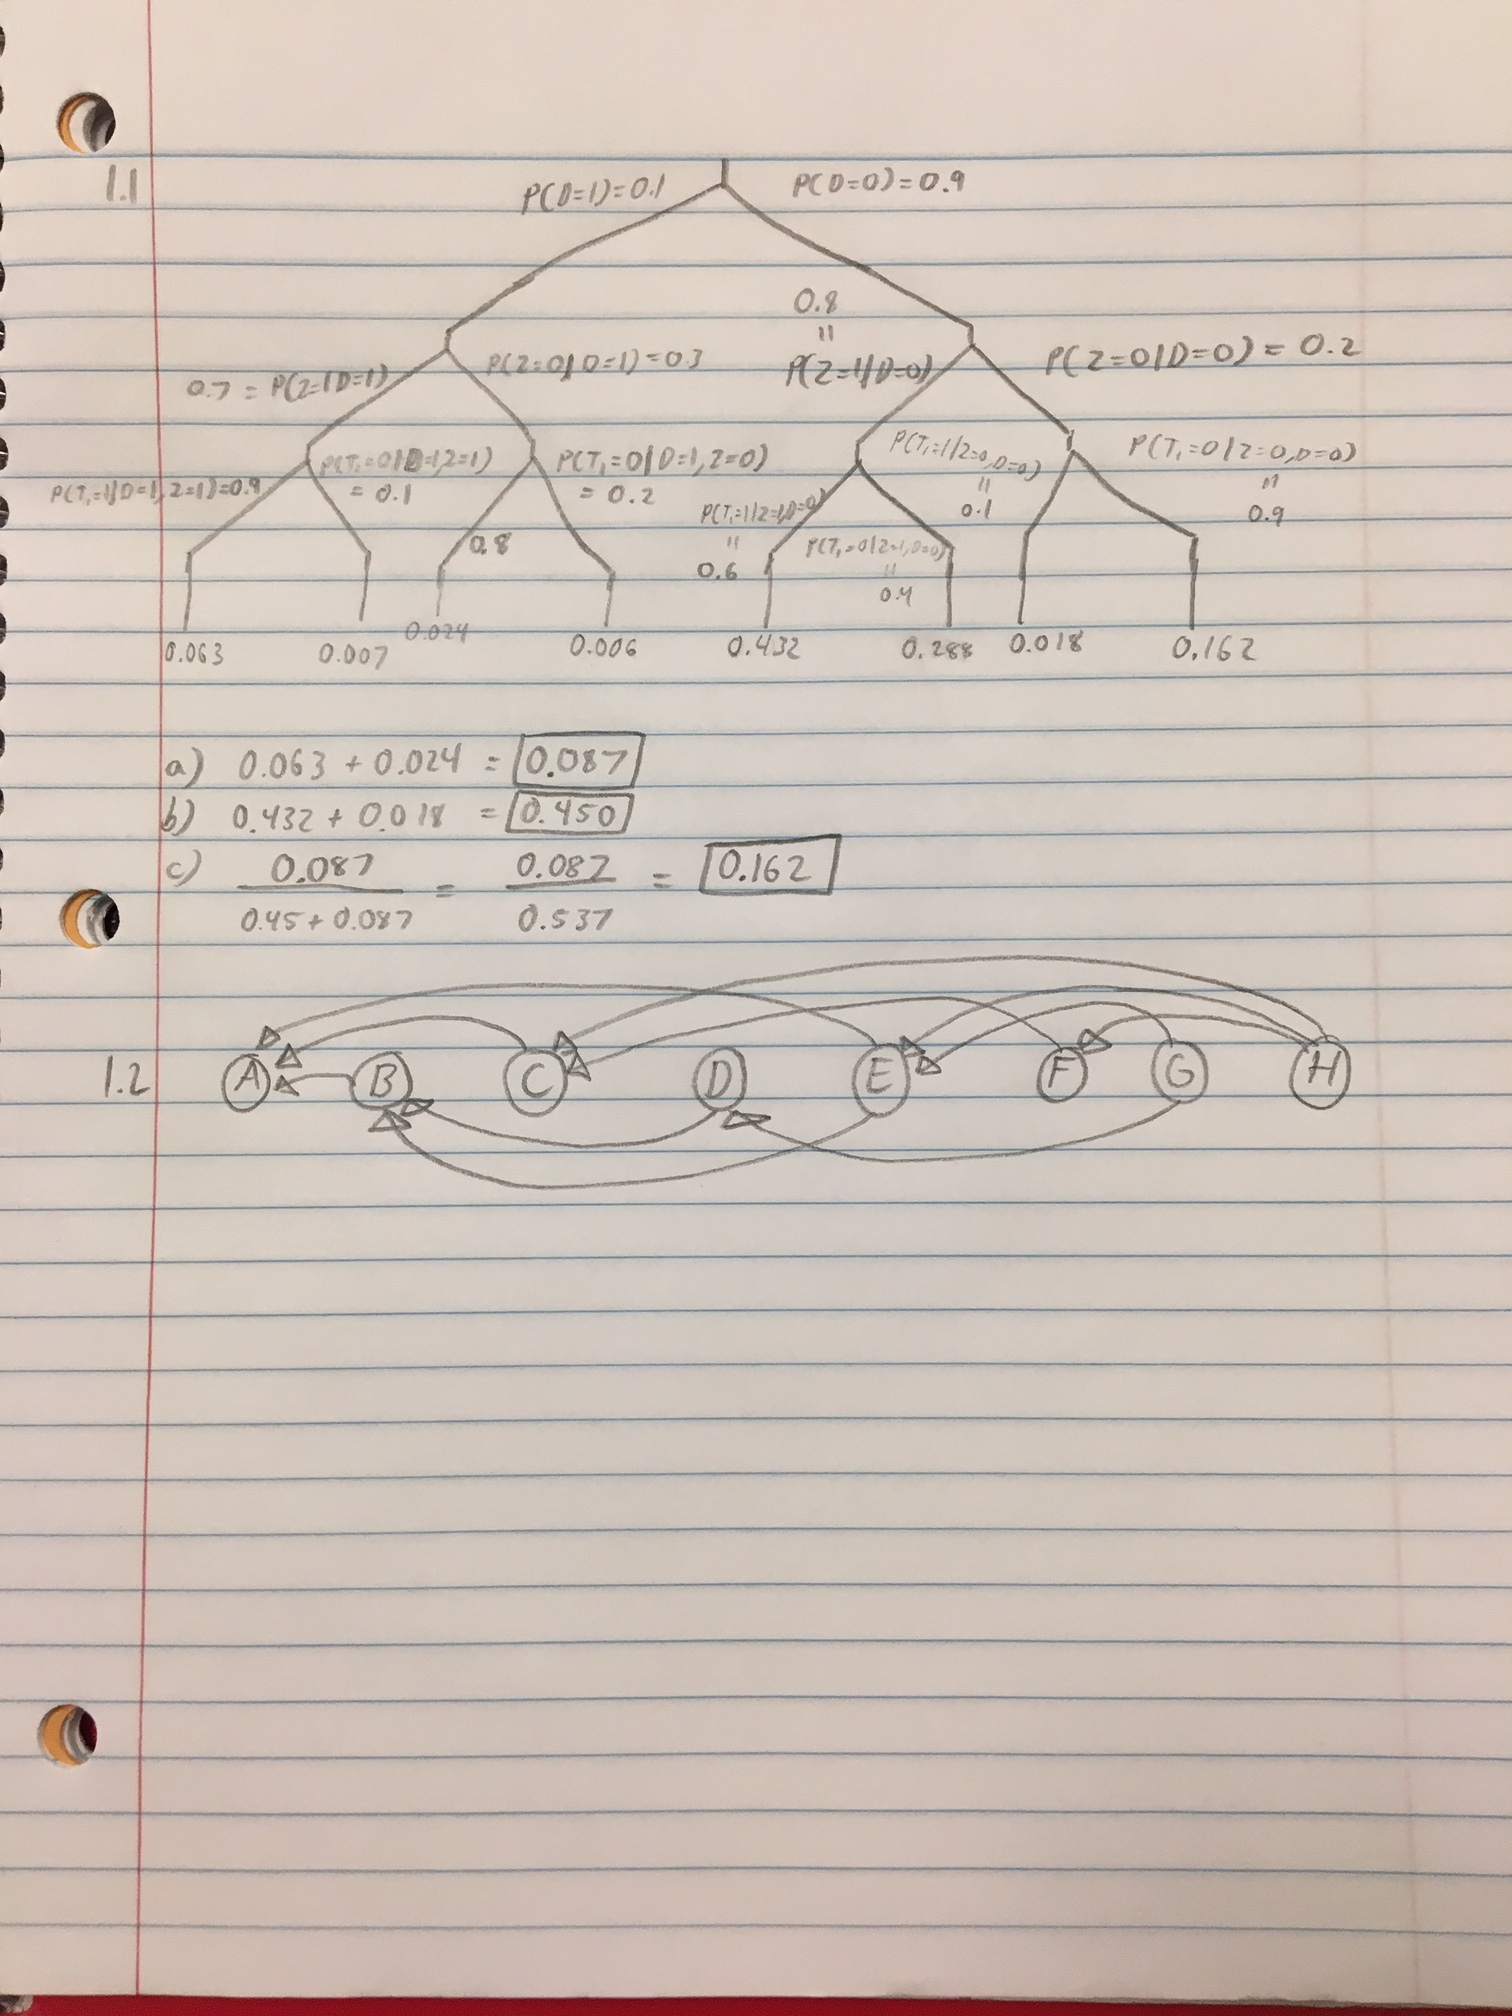 1.1
P(D=1)=0.1
P(D=0)=0.9
0.8
=
P(Z=1|D=0)
P(Z=0|D=0) = 0.2
0.7 = P(Z=1|D=1)
P(Z=0|D=1)=0.3
P(T₁=1|D=1,Z=1)=0.9
P(T₁=0|D=1,Z=1)
= 0.1
P(T₁=0|D=1,Z=0)
= 0.2
0.8
P(T₁=1|Z=1,D=0)
=
0.6
P(T₁=0|Z=1,D=0)
=
0.4
P(T₁=1|Z=0,D=0)
=
0.1
P(T₁=0|Z=0,D=0)
=
0.9
0.063 0.007 0.024 0.006 0.432 0.288 0.018 0.162
a) 0.063 + 0.024 = 0.087
b) 0.432 + 0.018 = 0.450
c) 0.087 / 0.45 + 0.087 = 0.087 / 0.537 = 0.162
1.2 A B C D E F G H